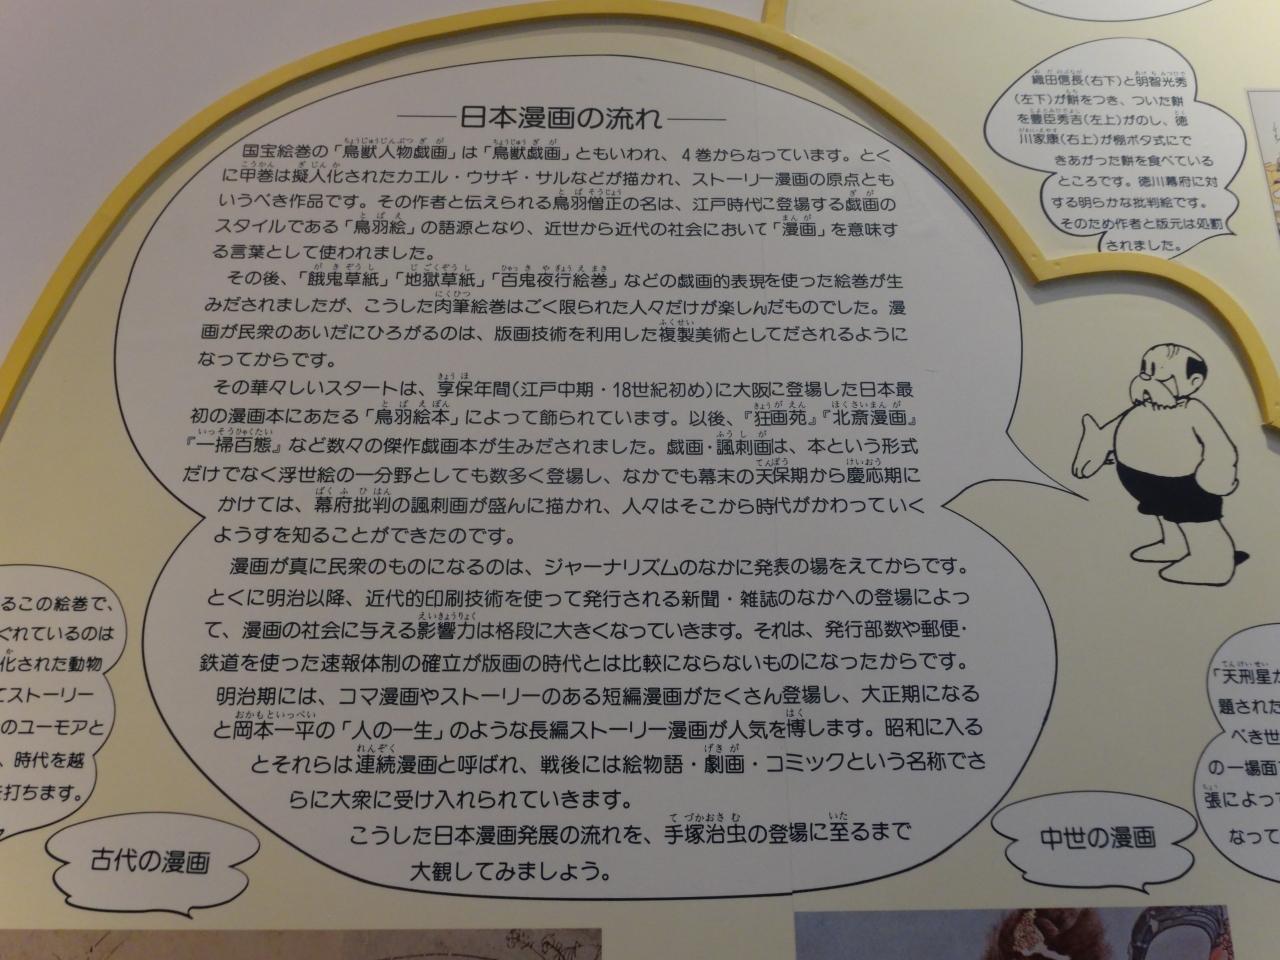 日本漫画の流れ
国宝絵巻の「鳥獣人物戯画」は「鳥獣戯画」ともいわれ、4巻からなっています。とく
に甲巻は擬人化されたカエル・ウサギ・サルなどが描かれ、ストーリー漫画の原点とも
いうべき作品です。その作者と伝えられる鳥羽僧正の名は、江戸時代に登場する戯画の
スタイルである「鳥羽絵」の語源となり、近世から近代の社会において「漫画」を意味す
る言葉として使われました。
その後、「餓鬼草紙」「地獄草紙」「百鬼夜行絵巻」などの戯画的表現を使った絵巻が生
みだされましたが、こうした肉筆絵巻はごく限られた人々だけが楽しんだものでした。漫
画が民衆のあいだにひろがるのは、版画技術を利用した複製美術としてだされるように
なってからです。
その華々しいスタートは、享保年間(江戸中期・18世紀初め)に大阪に登場した日本最
初の漫画本にあたる「鳥羽絵本」によって飾られています。以後、『狂画苑』『北斎漫画』
『一掃百態』など数々の傑作戯画本が生みだされました。戯画・諷刺画は、本という形式
だけでなく浮世絵の一分野としても数多く登場し、なかでも幕末の天保期から慶応期に
かけては、幕府批判の諷刺画が盛んに描かれ、人々はそこから時代がかわっていく
ようすを知ることができたのです。
漫画が真に民衆のものになるのは、ジャーナリズムのなかに発表の場をえてからです。
とくに明治以降、近代的印刷技術を使って発行される新聞・雑誌のなかへの登場によっ
て、漫画の社会に与える影響力は格段に大きくなっていきます。それは、発行部数や郵便・
鉄道を使った速報体制の確立が版画の時代とは比較にならないものになったからです。
明治期には、コマ漫画やストーリーのある短編漫画がたくさん登場し、大正期になる
と岡本一平の「人の一生」のような長編ストーリー漫画が人気を博します。昭和に入る
とそれらは連続漫画と呼ばれ、戦後には絵物語・劇画・コミックという名称でさ
らに大衆に受け入れられていきます。
こうした日本漫画発展の流れを、手塚治虫の登場に至るまで
大観してみましょう。
織田信長(右下)と明智光秀
(左下)が餅をつき、ついた餅
を豊臣秀吉(左上)がのし、徳
川家康(右上)が棚ボタ式にで
きあがった餅を食べている
ところです。徳川幕府に対
する明らかな批判絵です。
そのため作者と版元は処罰
されました。
るこの絵巻で、
ぐれているのは
化された動物
てストーリー
のユーモアと
、時代を越
打ちます。
古代の漫画
中世の漫画
「天刑星
題された
べき世
の一場面
張によって
なって